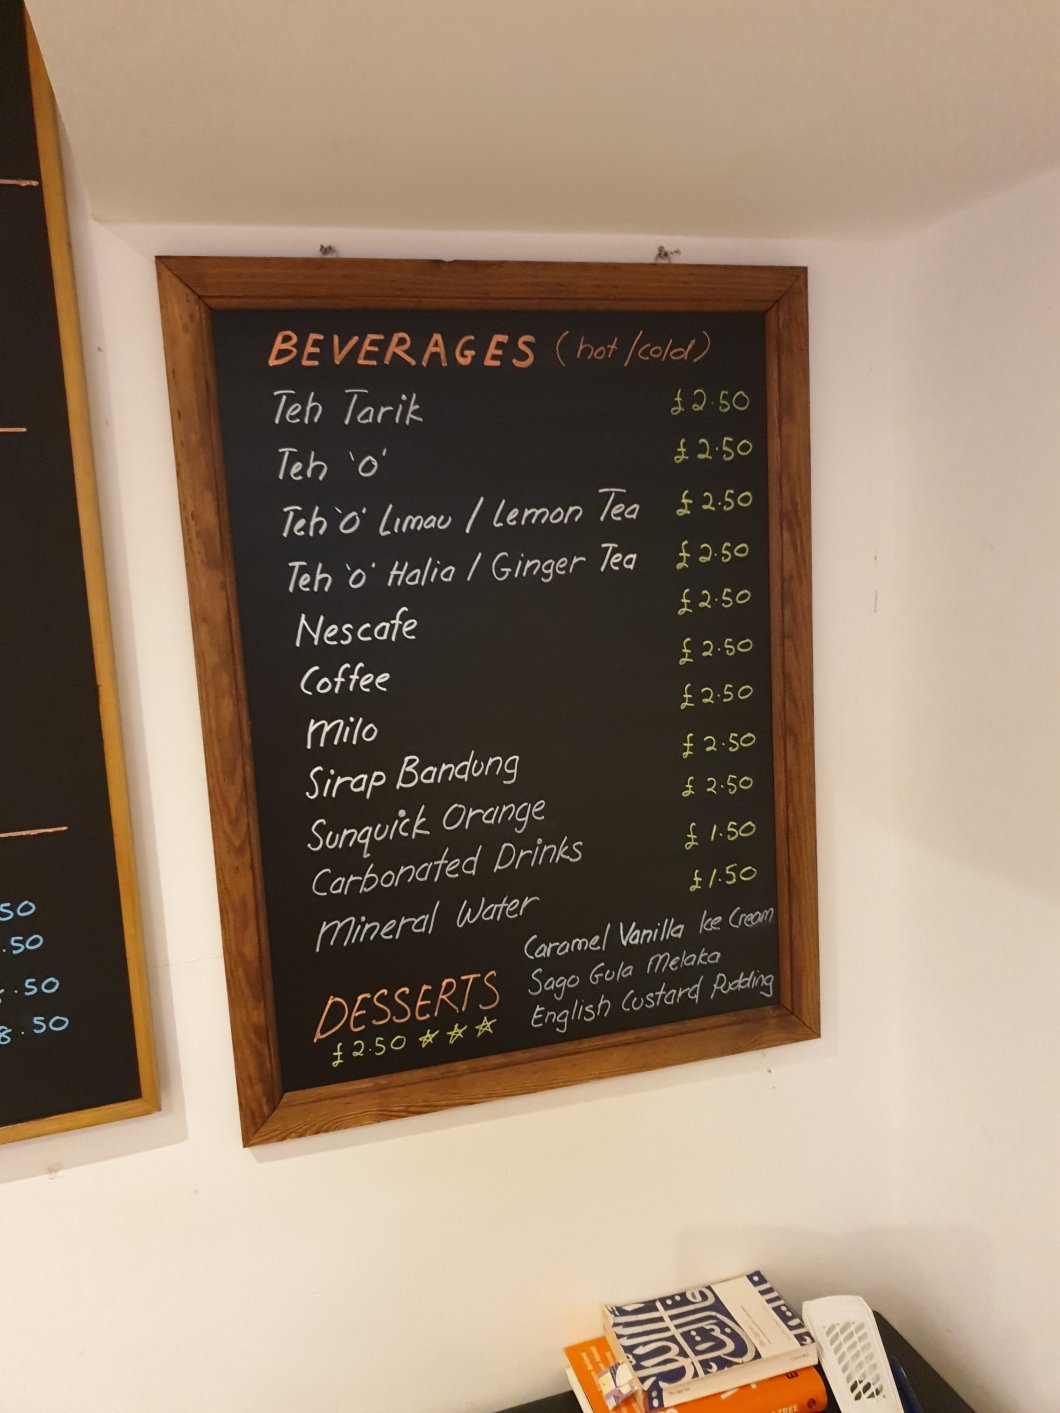 BEVERAGES (hot/cold)
Teh Tarik £2.50
Teh 'O' £2.50
Teh 'O' Limau / Lemon Tea £2.50
Teh 'O' Halia / Ginger Tea £2.50
Nescafe £2.50
Coffee £2.50
Milo £2.50
Sirap Bandung £2.50
Sunquick Orange £2.50
Carbonated Drinks £1.50
Mineral Water £1.50
DESSERTS
£2.50
Caramel Vanilla Ice Cream
Sago Gula Melaka
English Custard Pudding
50
.50
.50
8.50
TREE